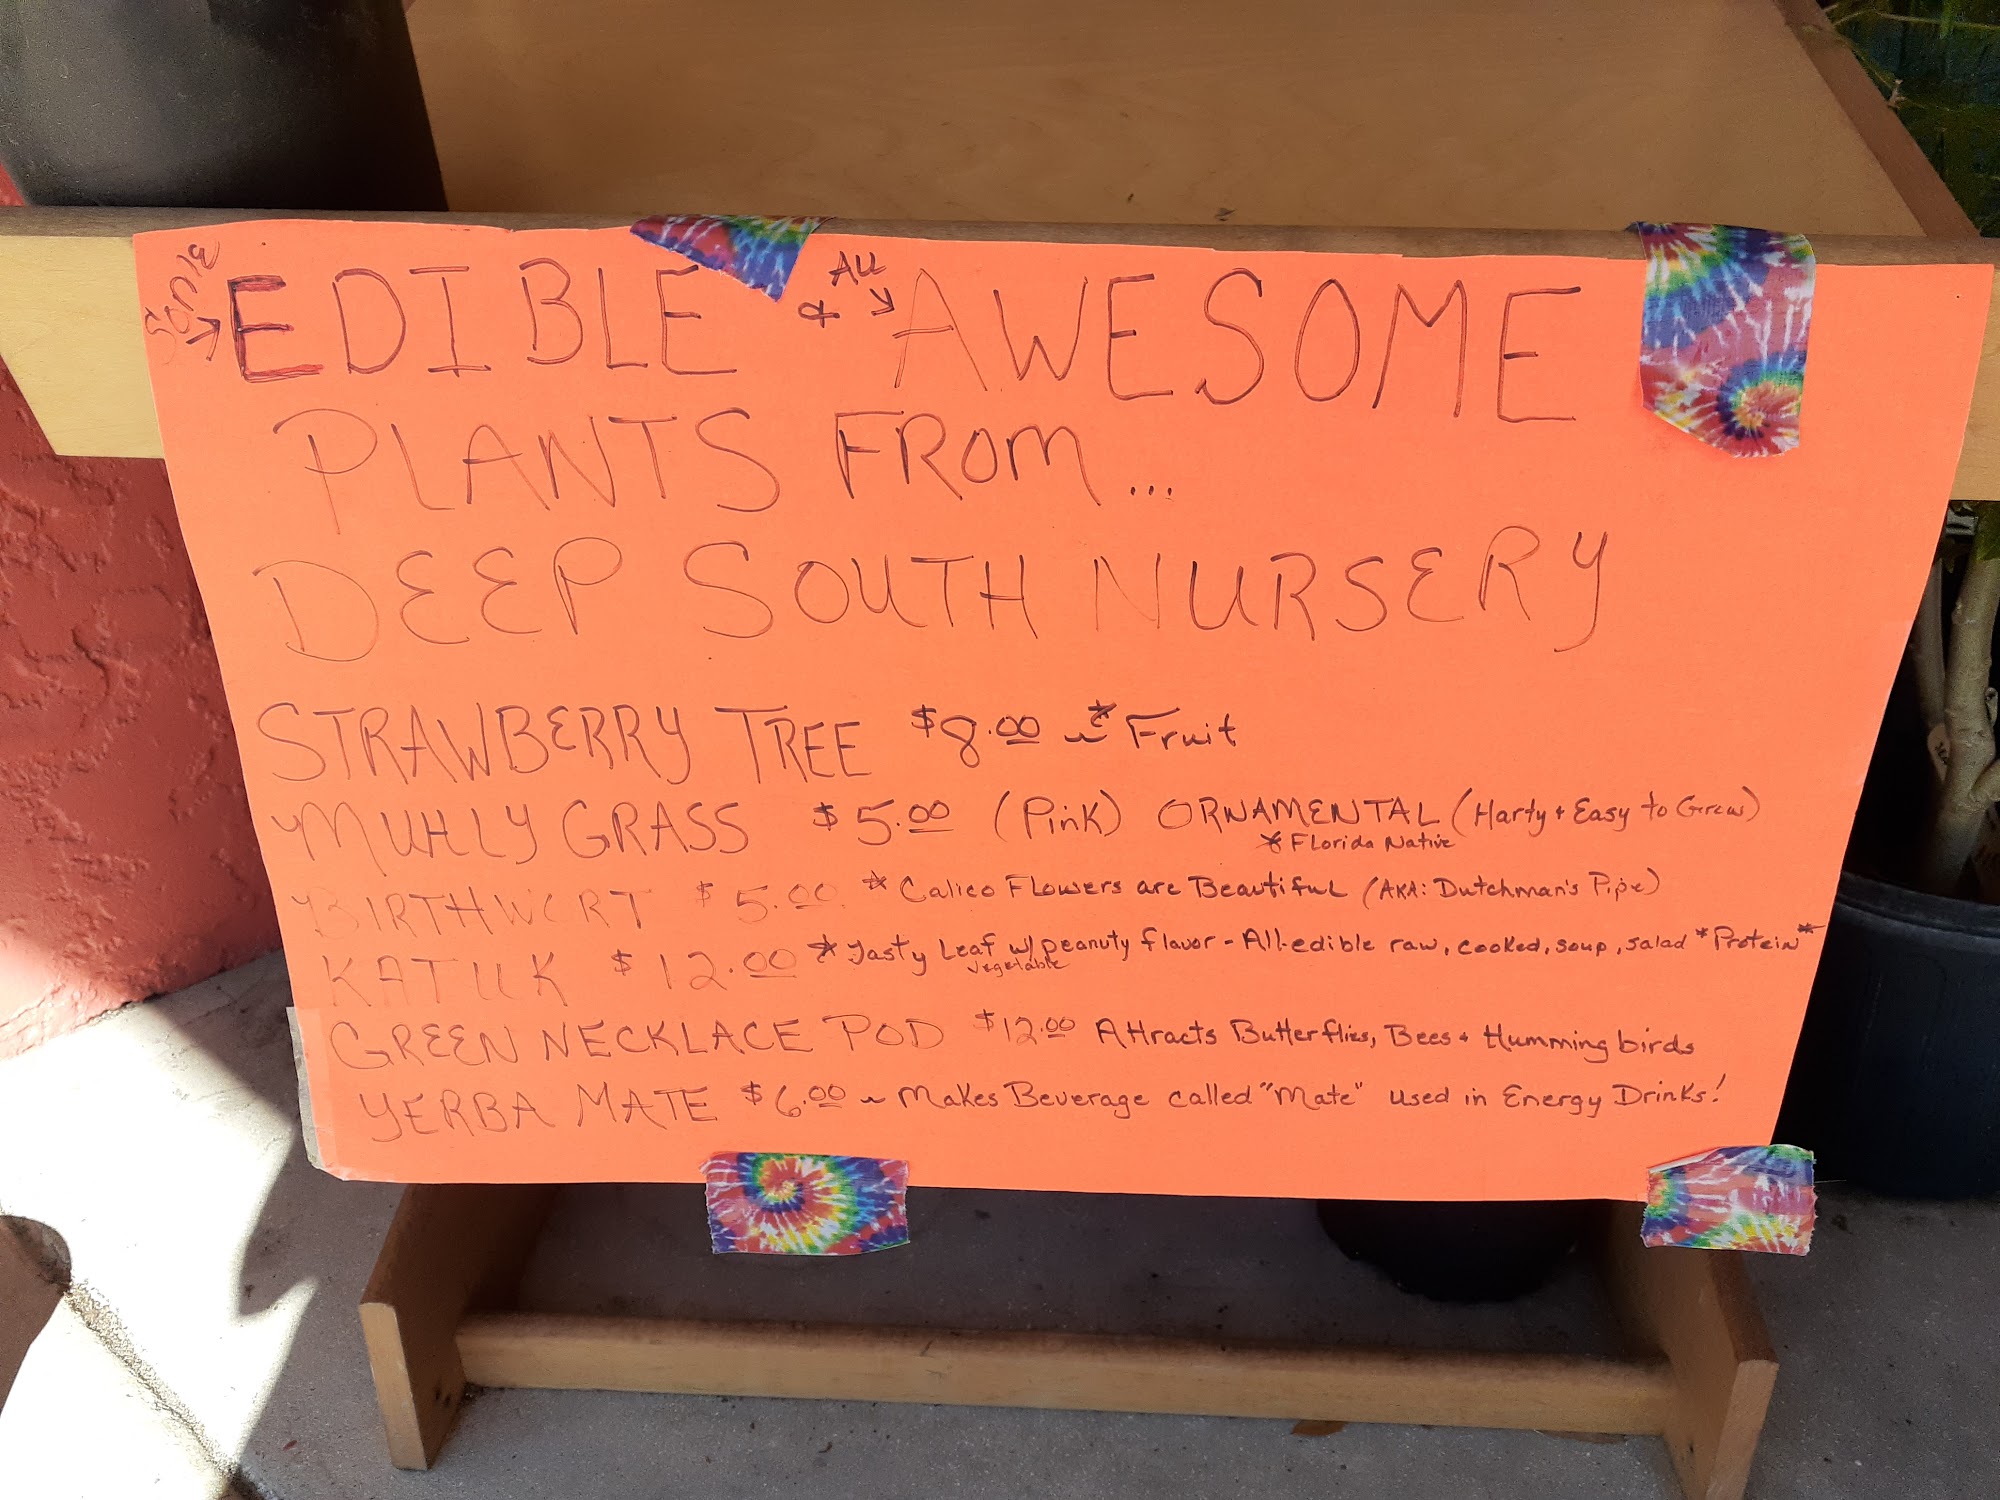 EDIBLE & All → AWESOME
PLANTS FROM...
DEEP SOUTH NURSERY
STRAWBERRY TREE $8.00 ~ * Fruit
MUHLY GRASS $5.00 (Pink) ORNAMENTAL (Harty + Easy to Grow)
* Florida Native
BIRTHWORT $5.00 * Calico Flowers are Beautiful (AKA: Dutchman's Pipe)
KATUK $12.00 * Tasty Leaf w/peanuty flavor - All-edible raw, cooked, soup, salad *Protein*
Vegetable
GREEN NECKLACE POD $12.00 Attracts Butterflies, Bees + Hummingbirds
YERBA MATE $6.00 ~ Makes Beverage called "Mate" used in Energy Drinks!